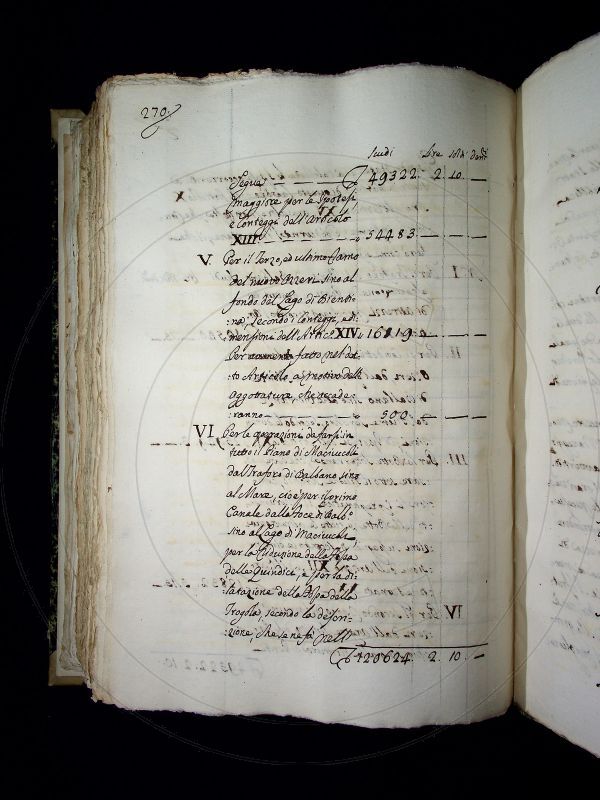 270.
Scudi Lire soldi denri
Segue 49322. 2. 10. —
maggiore per le Ipotesi,
e Conteggi dell'Articolo
XIII 54483. — — —
V. Per il Terzo, ed ultimo Ramo
del nuovo Ozzeri sino al
fondo del Lago di Bienti=
:na, secondo i Conteggi, e di=
mensioni dell'Artic.o XIV. 16319. — — —
Per aumento fatto nel det=
to Articolo a motivo delle
aggottature, che accade=
:ranno 500. — — —
VI Per le operazioni da farsi in
tutto il Piano di Maciuccoli
dal Traforo di Balbano sino
al Mare, cioè per il primo
Canale dalla Foce di Balb.o
sino al Lago di Maciuccoli,
per la Riduzione della Fossa
delle Quindici, e per la di=
latazione della Fossa della
Fragola, secondo la descri=
:zione, che se ne fà nell'
120624. 2. 10. —